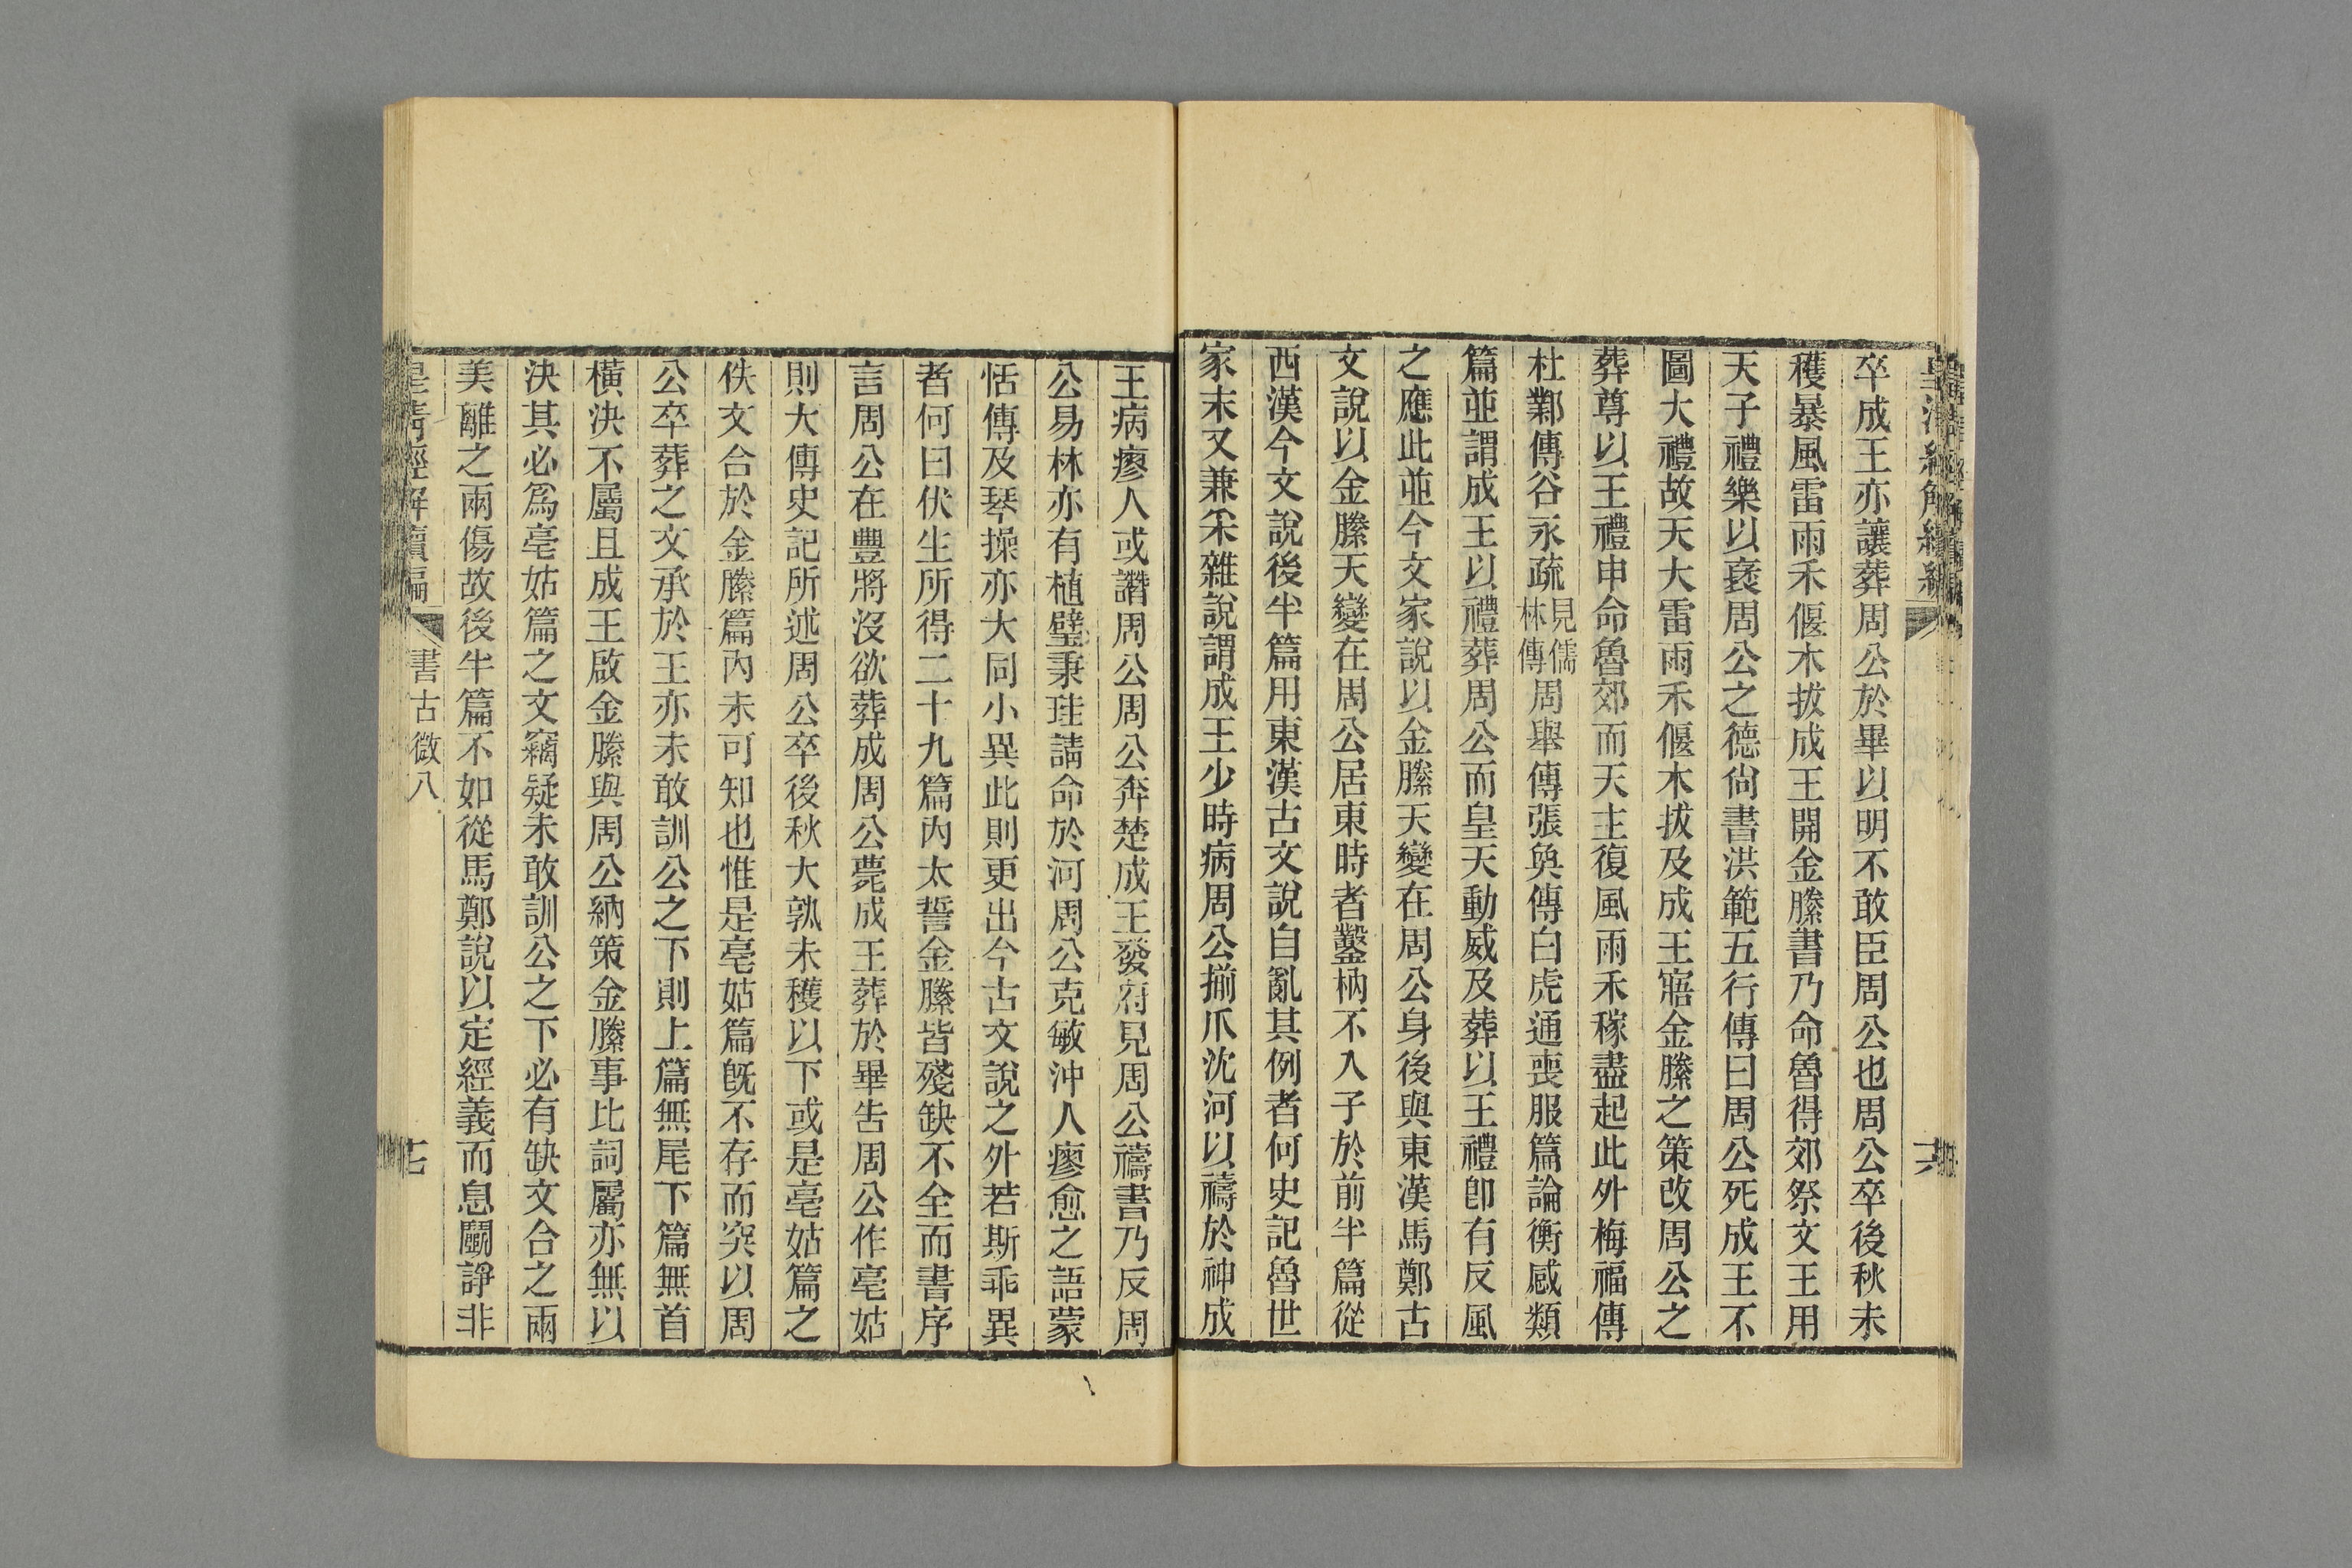 卒成王亦讓葬周公於畢以明不敢臣周公也周公卒後秋未
穫暴風雷雨禾偃木拔成王開金縢書乃命魯得郊祭文王用
天子禮樂以襃周公之德尙書洪範五行傳曰周公死成王不
圖大禮故天大雷雨禾偃木拔及成王寤金縢之策改周公之
葬尊以王禮申命魯郊而天主復風雨禾稼盡起此外梅福傳
杜鄴傳谷永疏見儒林傳周舉傳張奐傳白虎通喪服篇論衡感類
篇並謂成王以禮葬周公而皇天動威及葬以王禮卽有反風
之應此並今文家說以金縢天變在周公身後與東漢馬鄭古
文說以金縢天變在周公居東時者鑿枘不入子於前半篇從
西漢今文說後半篇用東漢古文說自亂其例者何史記魯世
家末又兼采雜說謂成王少時病周公揃爪沈河以禱於神成
王病瘳人或譖周公周公奔楚成王發府見周公禱書乃反周
公易林亦有植璧秉珪請命於河周公克敏沖人瘳愈之語蒙
恬傳及琴操亦大同小異此則更出今古文說之外若斯乖異
者何曰伏生所得二十九篇內太誓金縢皆殘缺不全而書序
言周公在豐將沒欲葬成周公薨成王葬於畢告周公作亳姑
則大傳史記所述周公卒後秋大孰未穫以下或是亳姑篇之
佚文合於金縢篇內未可知也惟是亳姑篇旣不存而突以周
公卒葬之文承於王亦未敢訓公之下則上篇無尾下篇無首
橫決不屬且成王啟金縢與周公納策金縢事比詞屬亦無以
決其必爲亳姑篇之文竊疑未敢訓公之下必有缺文合之兩
美離之兩傷故後半篇不如從馬鄭說以定經義而息鬭諍非
皇清經解續編
書古微八
十七